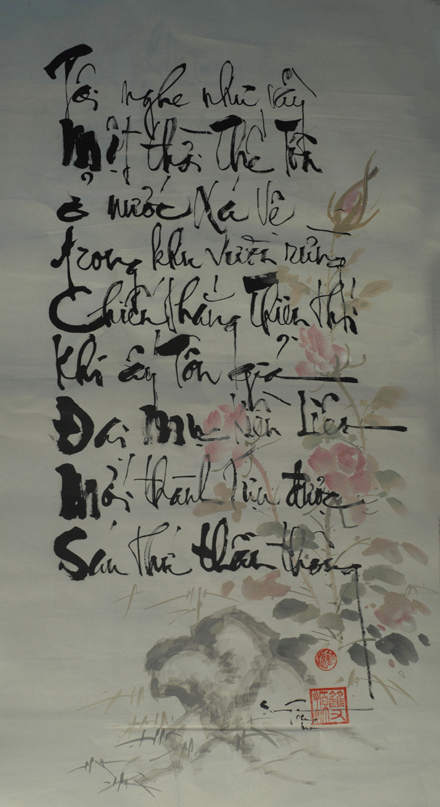 Tôi nghe như vầy
Một thời Thế Tôn
ở nước Xá Vệ
trong khu vườn rừng
Chiến thắng Thiên thi
Khi ấy Tôn giả
Đại Mục Kiền Liên
Mới thành tựu được
Sáu thứ thần thông